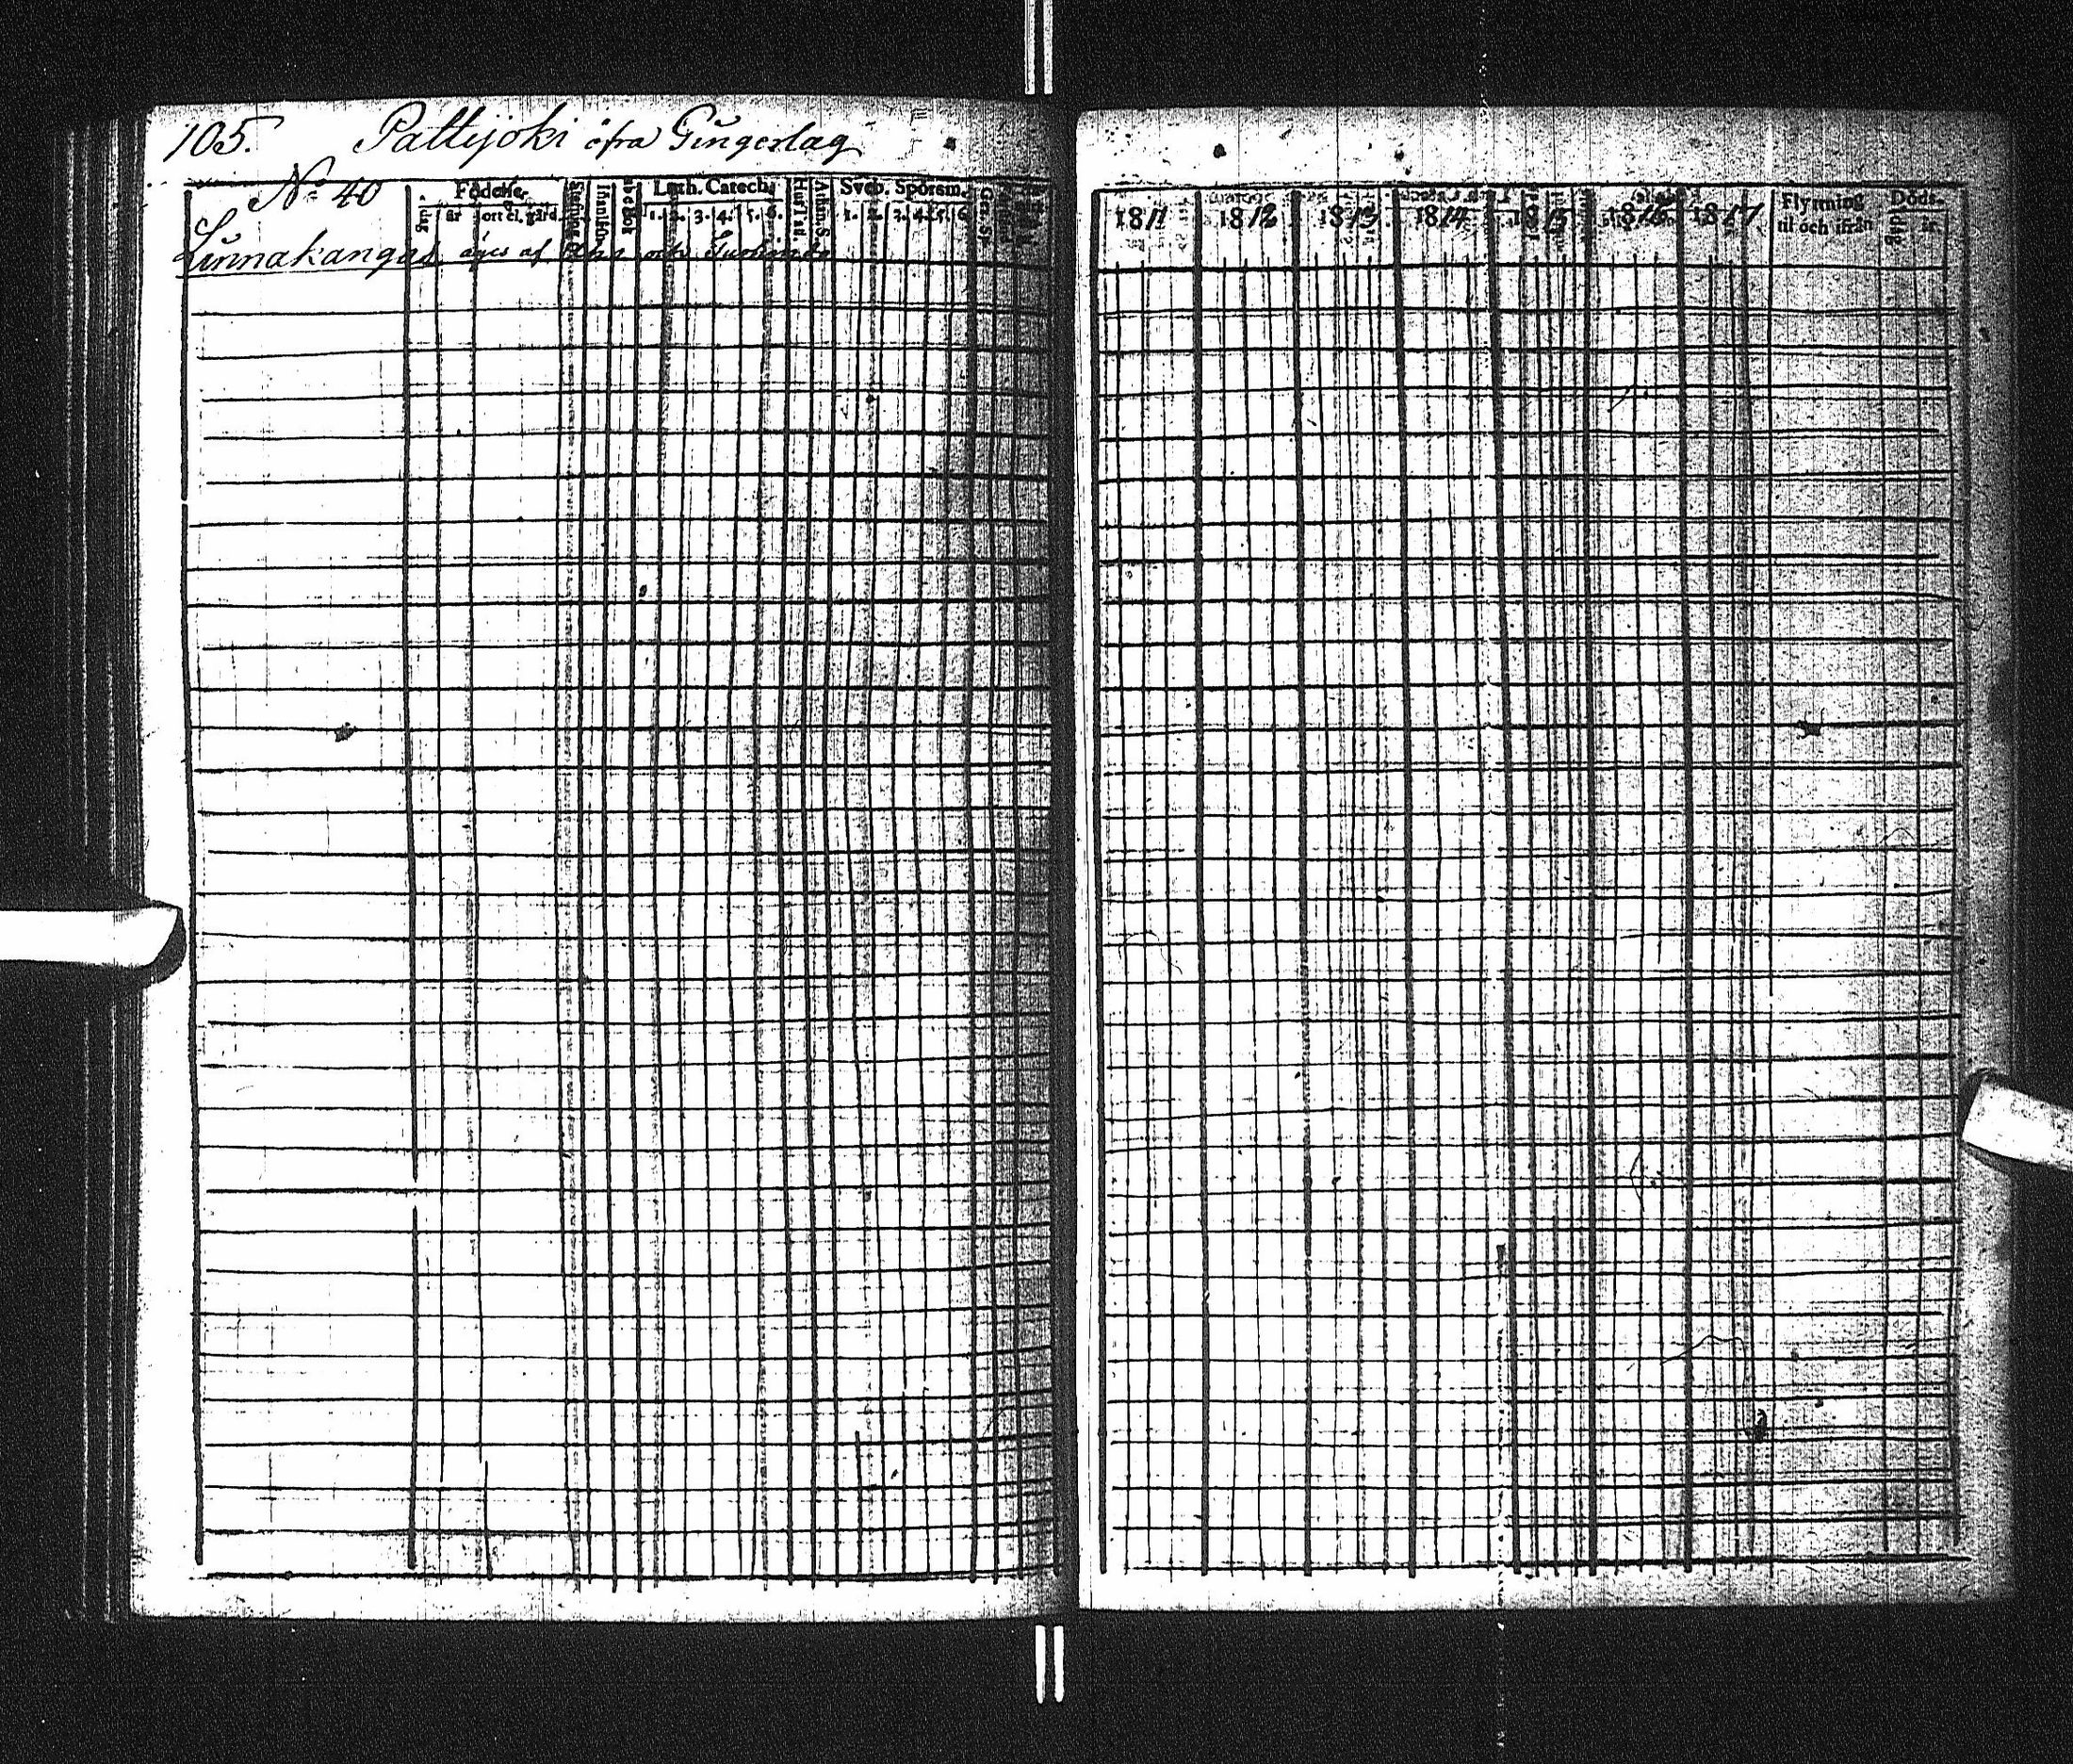 105. Pattijoki öfra Gingerlag
No 40
Födelse-
dag år ort el. gård.
Luth. Catech.
1. 2. 3. 4. 5. 6.
Sveb. Spörsm.
1. 2. 3. 4. 5. 6.
Linnakangas äges af och
1811 1812 1813 1814 1815 1816 1817
Flyttning
til och ifrån
Döds-
dag år.